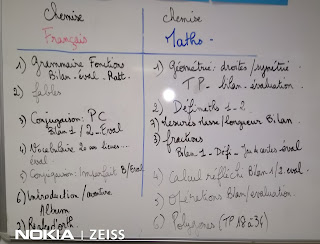 chemise
Français
1) Grammaire Fonctions
Bilan - éval - Ratt.
2) fables
3) Conjugaison : PC
Bilan 1 / 2 - Eval
4) Vocabulaire
éval
5) Conjugaison : Imparfait B/Eval
6) Introduction / aventure
Album
chemise
Maths -
1) Géométrie : droites / symétrie
TP - bilan - évaluation
2) Défimaths 1 - 2
3) mesures masse / longueur Bilan
3) fractions
Bilan 1 - Défi - Jeu de cartes - éval
4) calcul réfléchi Bilan 1 / 2 éval
5) Opérations Bilan / évaluation
6) Polygones (TP 18 à 34)
NOKIA | ZEISS